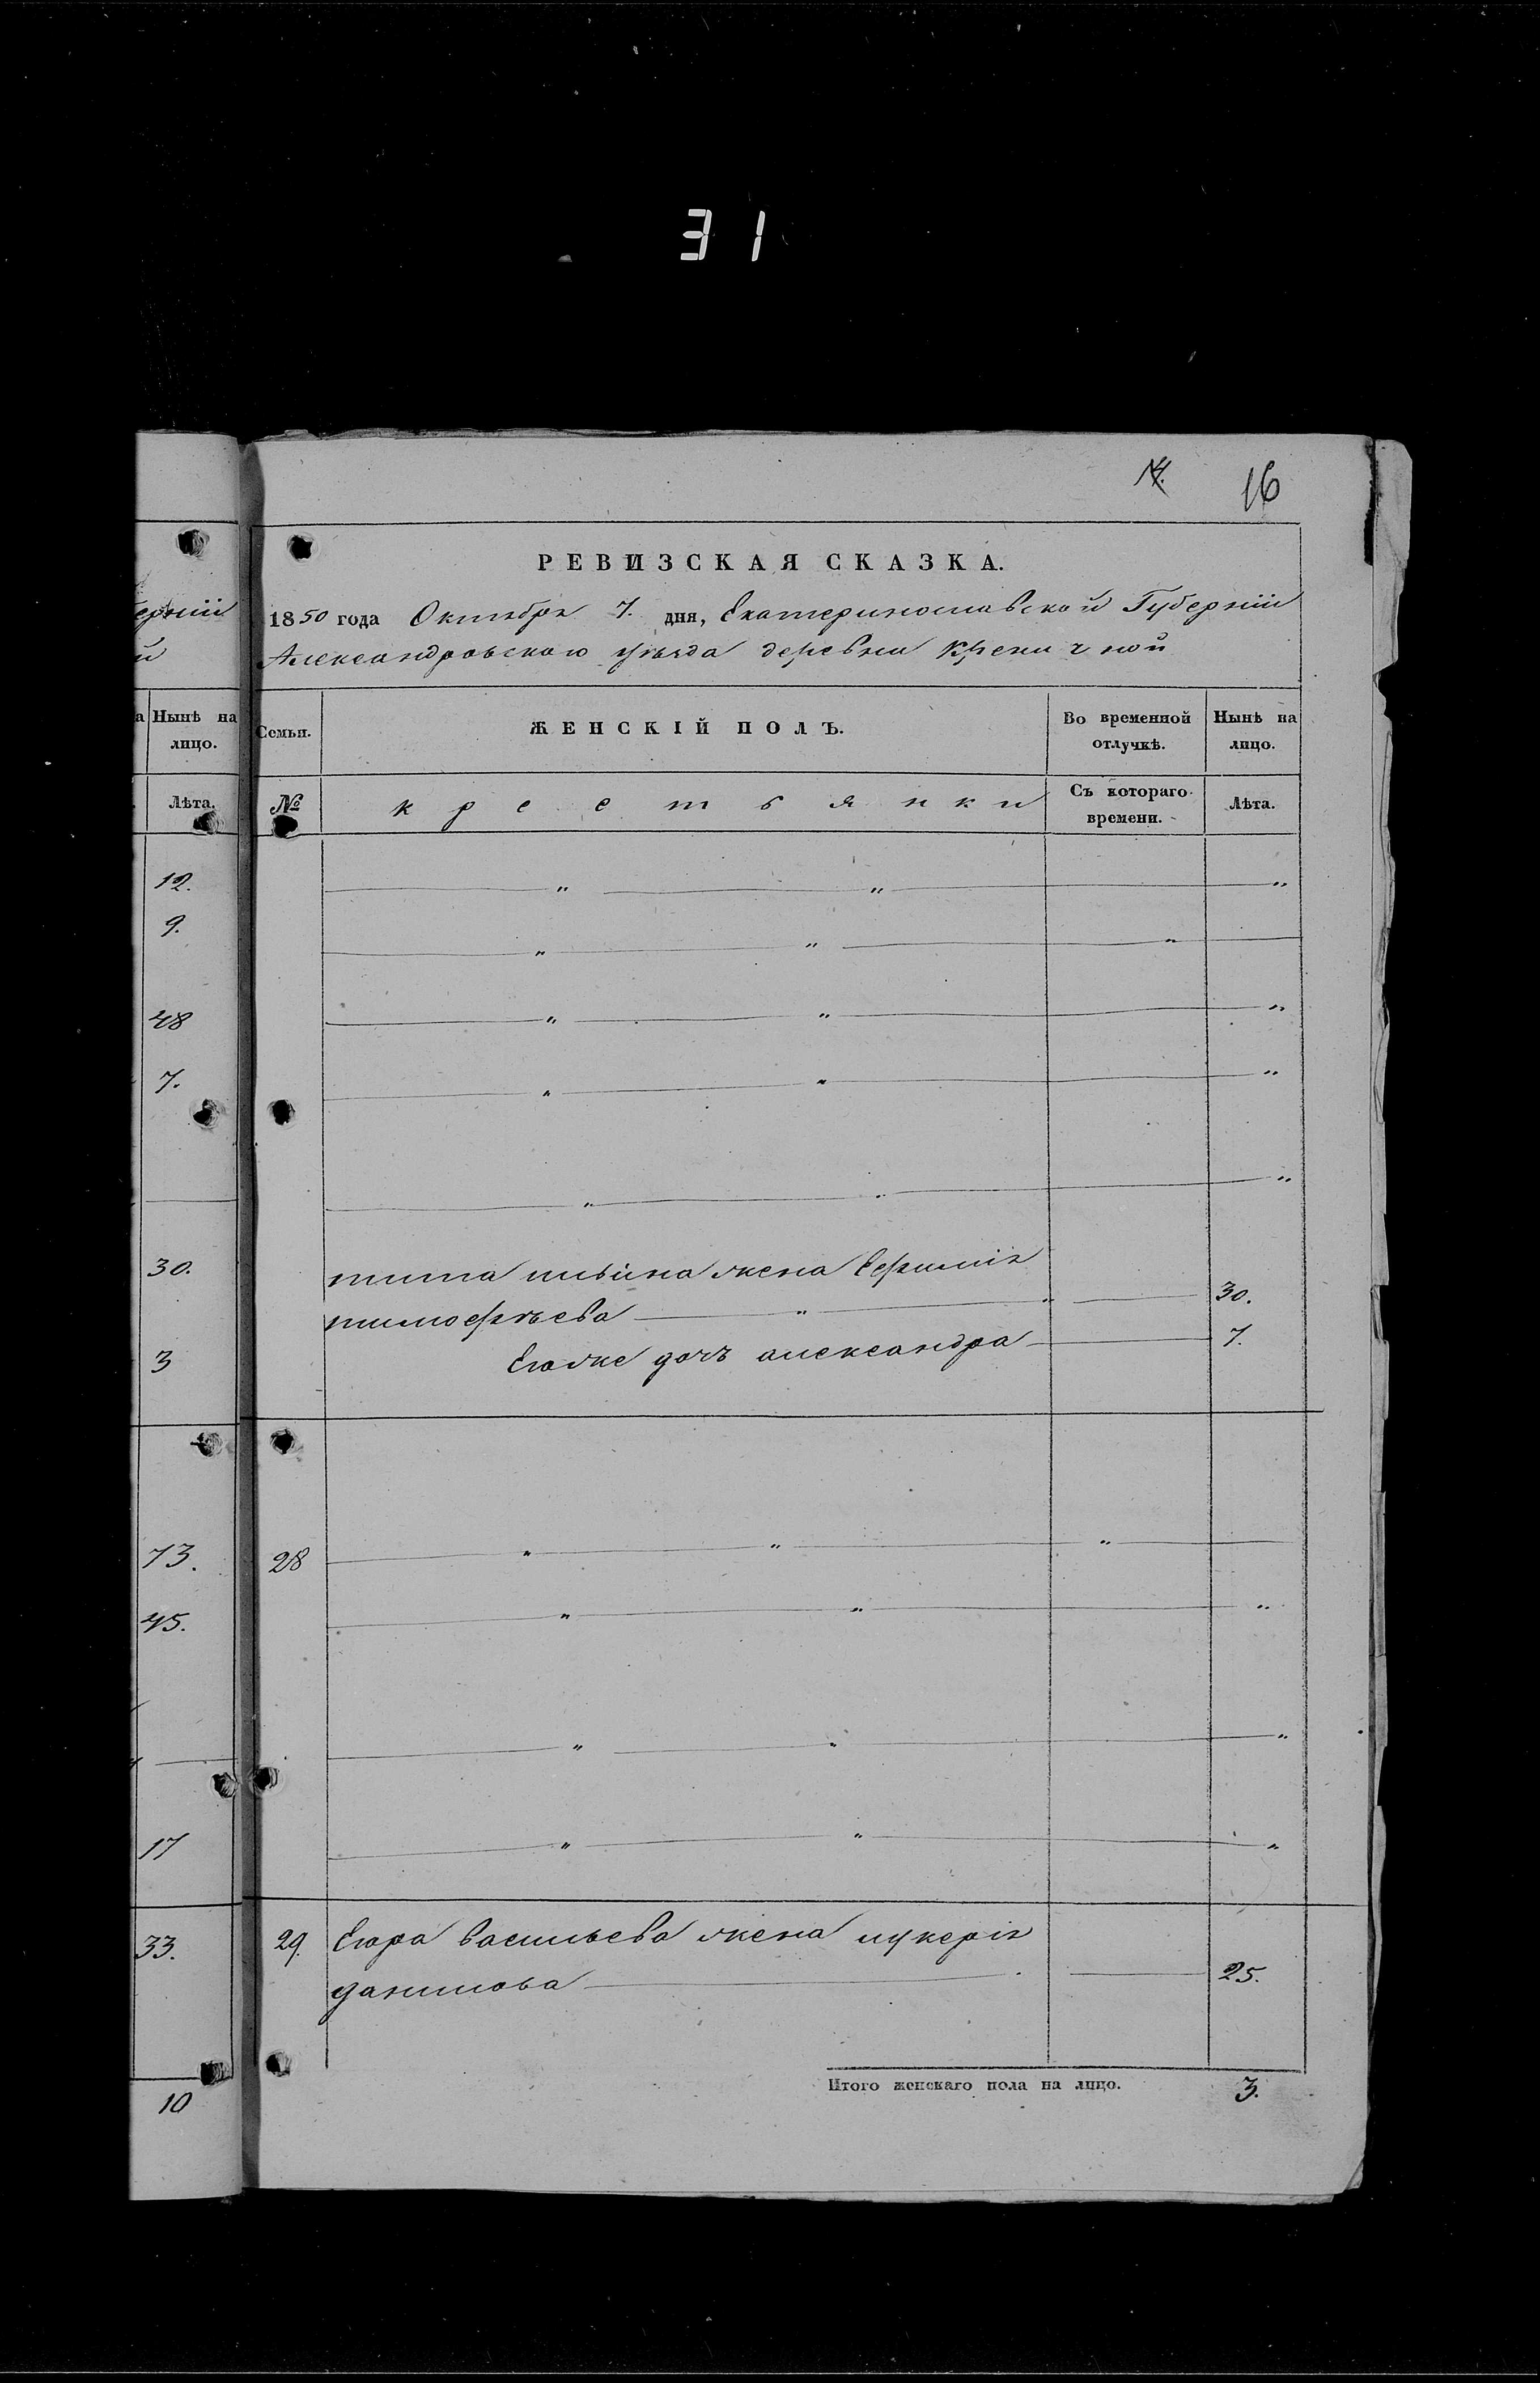 31
14. 16
РЕВИЗСКАЯ СКАЗКА.
ерніи 1850 года Октября 7. дня, Екатеринославской Губерніи
й Александровскаго уѣзда деревни Кремичной
а Нынѣ на лицо. Семьи. ЖЕНСКІЙ ПОЛЪ. Во временной отлучкѣ. Нынѣ на лицо.
Лѣта. № крестьянки Съ котораго времени. Лѣта.
12. " " "
9. " " "
48 " " "
7. " " "
" " "
30. тита ильина жена Ефимія
тимофѣева " " 30.
3 Егоже дочь александра 7.
73. 28 " " "
45. " " "
" " "
17 " " "
33. 29. Егора васильева жена лукерія
данилова 25.
Итого женскаго пола на лицо. 3.
10